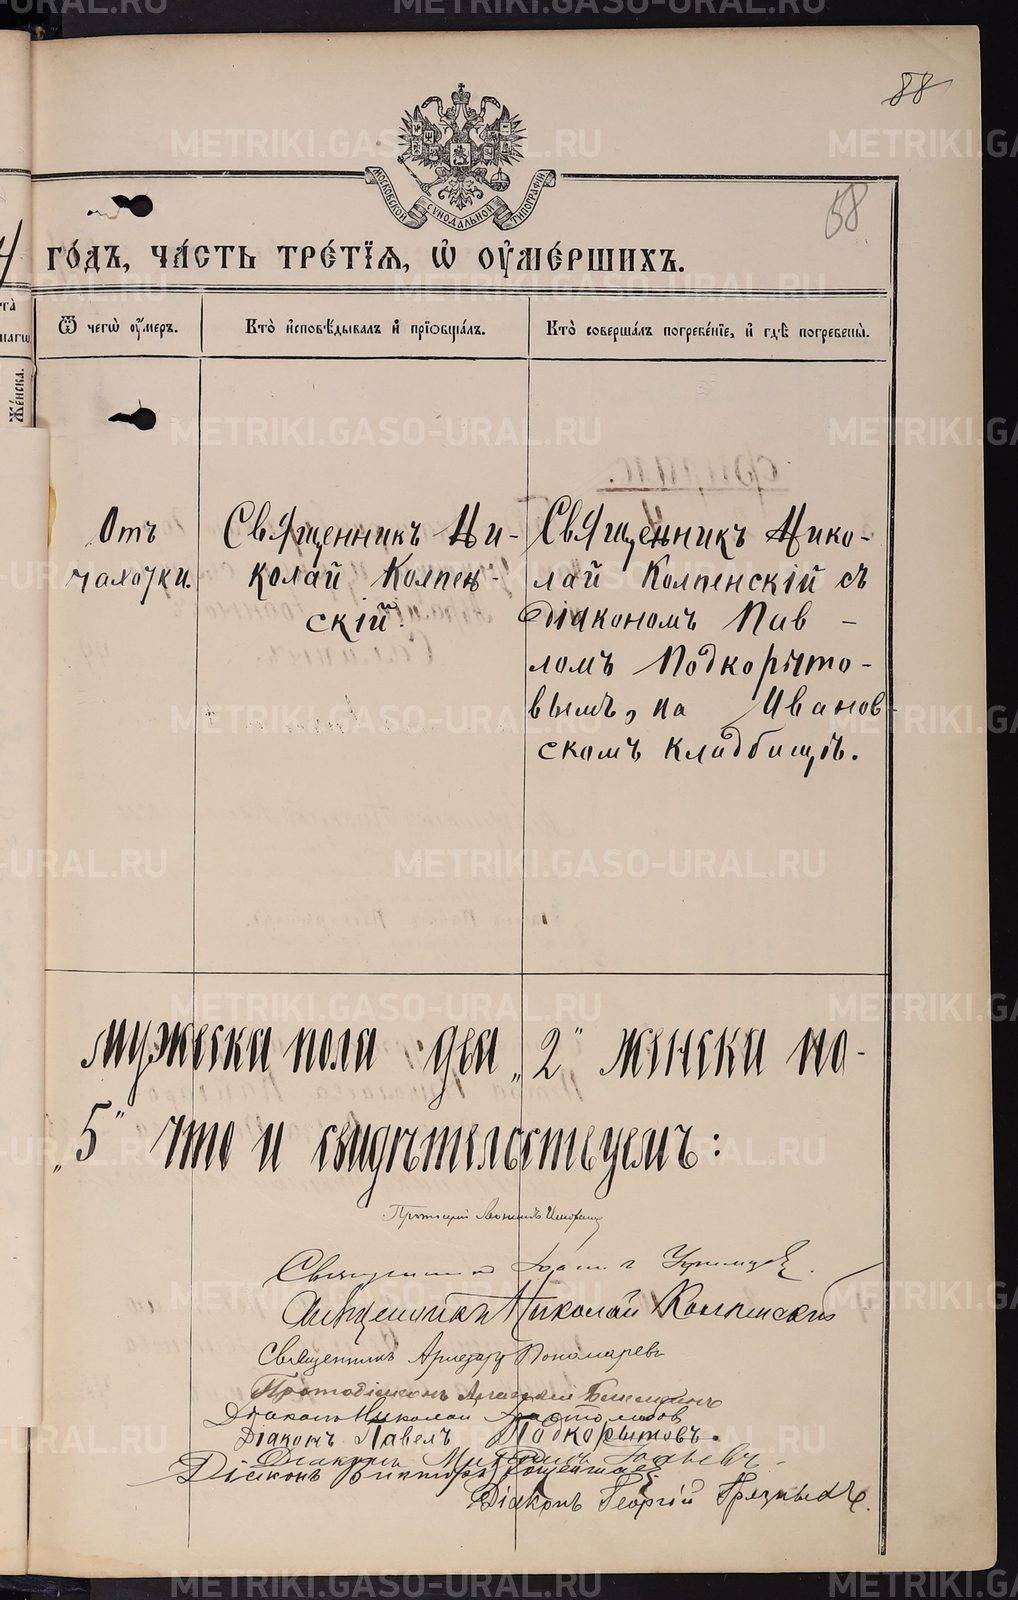 METRIKI.GASO-URAL.RU
88
58
МОСКОВСКОЙ СѴНОДАЛЬНОЙ ТИПОГРАФІИ
го́дъ, ча́сть тре́тїѧ, ѡ҆ оу҆ме́ршихъ.
Ѿ чегѡ̀ оу҆́меръ.
Кто̀ и҆сповѣ́дывалъ и҆ прїѡбща́лъ.
Кто̀ соверша́лъ погребе́нїе, и҆ гдѣ̀ погребены̀.
Же́нска.
Отъ
чахотки.
Священникъ Ни-
колай Колпен-
скій.
Священникъ Нико-
лай Колпенскій съ
діакономъ Пав-
ломъ Подкорыто-
вымъ, на Иванов-
скомъ кладбищѣ.
мужеска пола два „2" женска по-
„5" что и свидѣтельствуемъ:
Протоіерей Леонидъ
Священникъ
Священникъ Николай Колпенскій
Священникъ Пономаревъ
Протодіаконъ Аркадій
Діаконъ Николай
Діаконъ Павелъ Подкорытовъ.
Діаконъ
Діаконъ Викторъ
Діаконъ Георгій Грязныхъ.